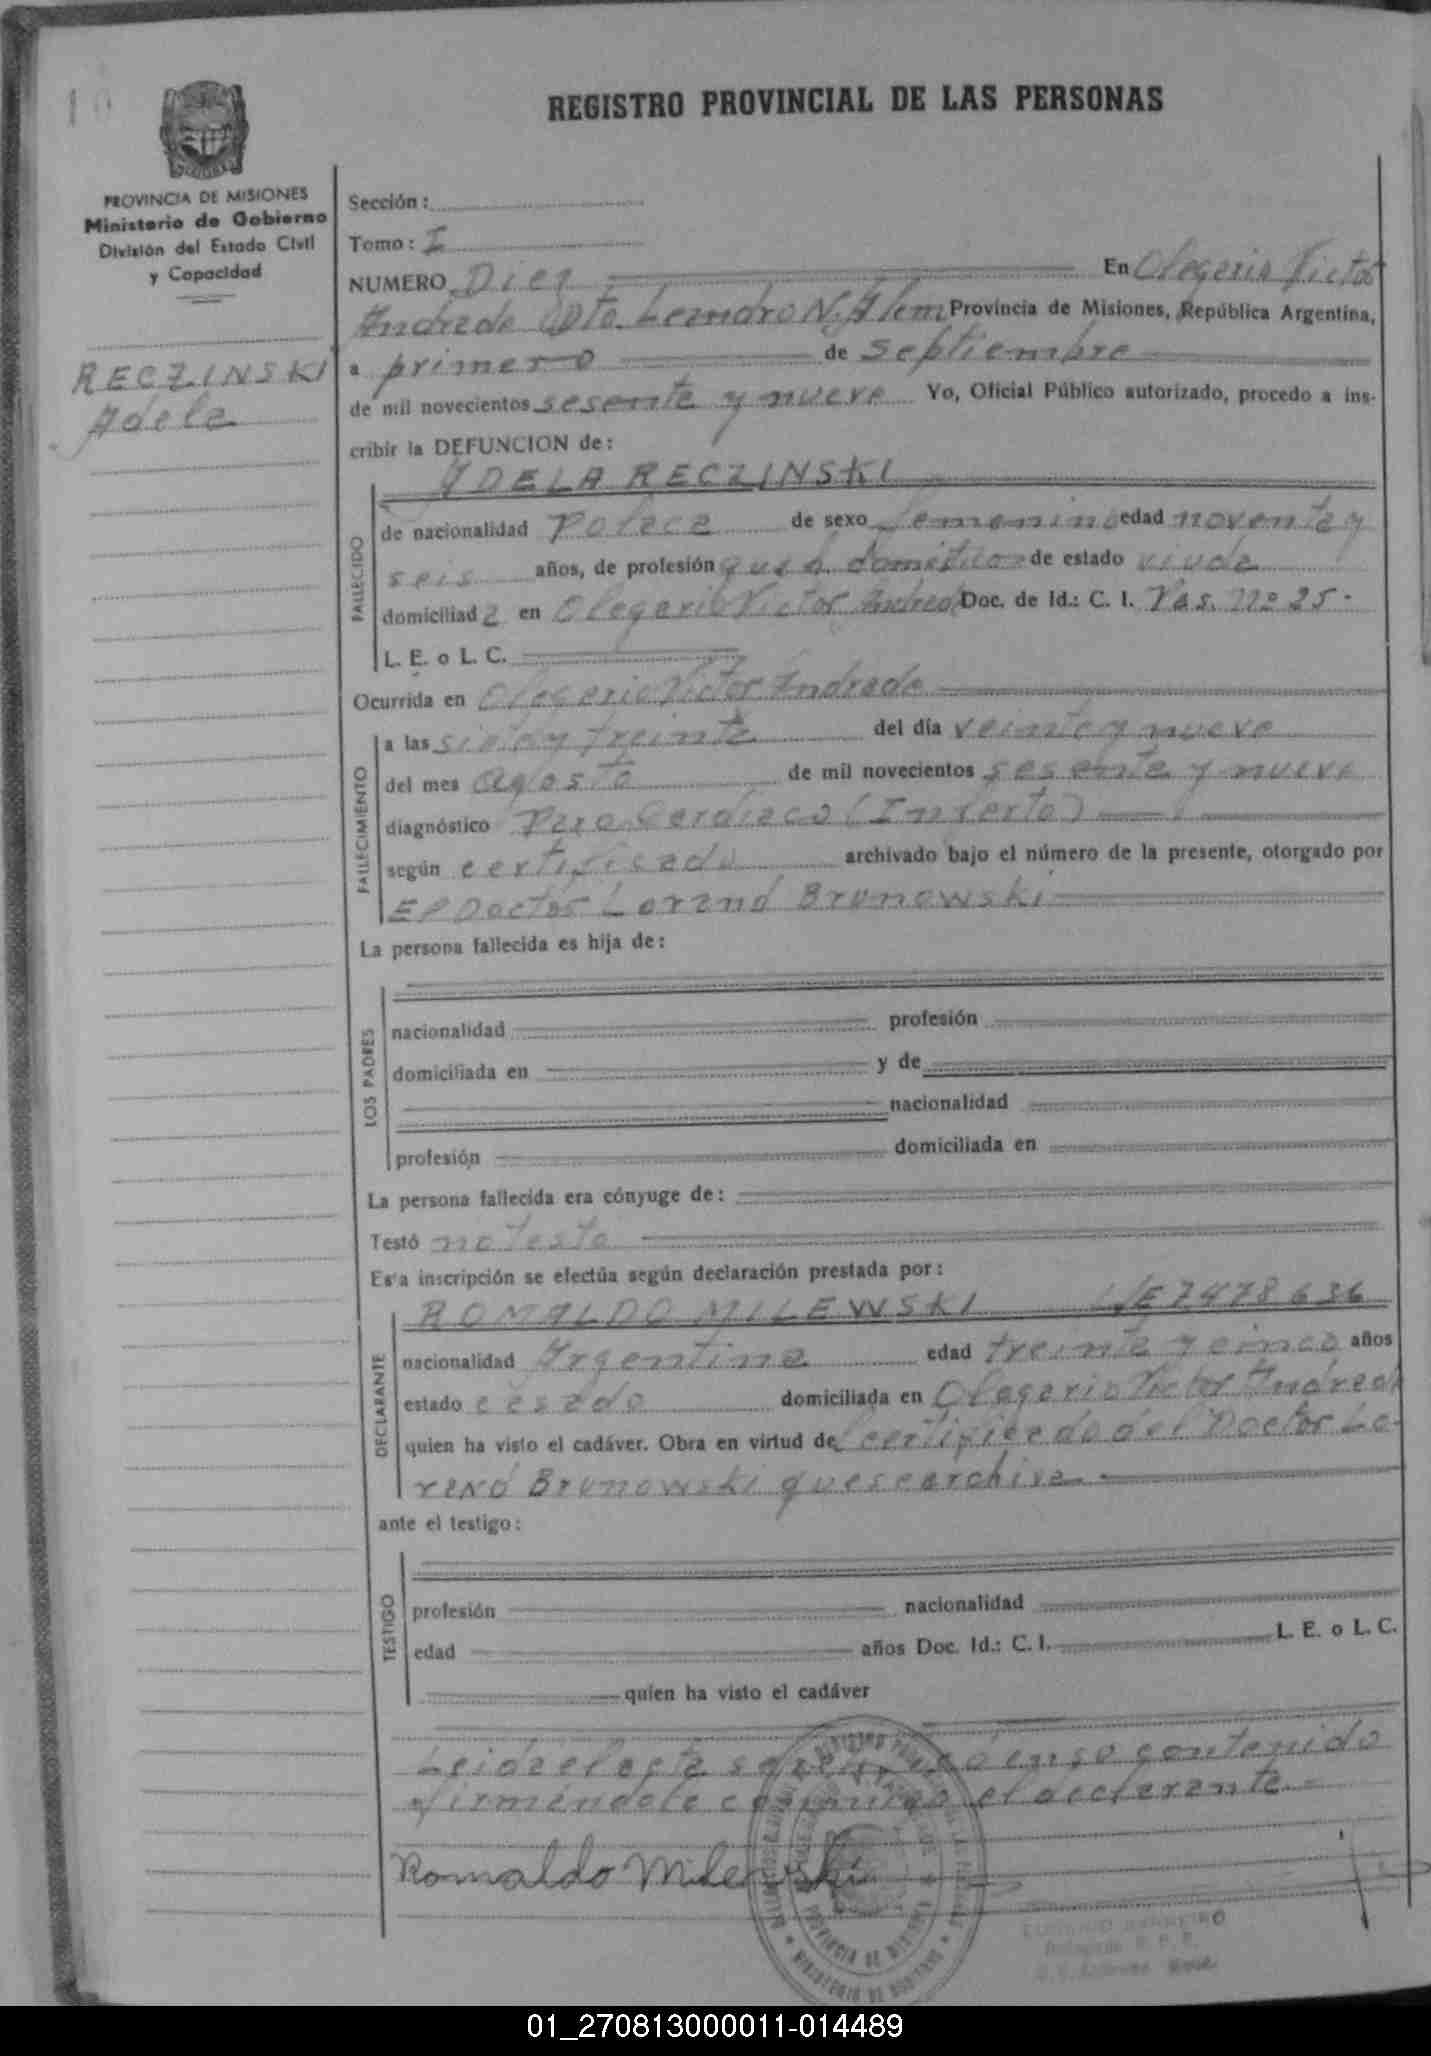 10
REGISTRO PROVINCIAL DE LAS PERSONAS
PROVINCIA DE MISIONES
Ministerio de Gobierno
División del Estado Civil
y Capacidad
RECZINSKI
Adela
Sección:
Tomo: I
NUMERO Diez En Olegario Victor
Andrade Dpto. Leandro N. Alem Provincia de Misiones, República Argentina,
a primero de septiembre
de mil novecientos sesenta y nueve Yo, Oficial Público autorizado, procedo a ins-
cribir la DEFUNCION de:
ADELA RECZINSKI
FALLECIDO
de nacionalidad Polaca de sexo femenino edad noventa y
seis años, de profesión domésticos de estado viuda
domiciliada en Olegario Victor Andrade Doc. de Id.: C. I. Pas. nº 25.
L. E. o L. C.
Ocurrida en Olegario Victor Andrade
FALLECIMIENTO
a las siete y treinta del día veinte y nueve
del mes Agosto de mil novecientos sesenta y nueve
diagnóstico Paro Cardiaco (Infarto)
según certificado archivado bajo el número de la presente, otorgado por
El Doctor Lorand Brunowski
La persona fallecida es hija de:
LOS PADRES
nacionalidad profesión
domiciliada en y de
nacionalidad
profesión domiciliada en
La persona fallecida era cónyuge de:
Testó no testo
Esta inscripción se efectúa según declaración prestada por:
DECLARANTE
ROMALDO MILEWSKI L/E 7478636
nacionalidad Argentina edad treinta y cinco años
estado casado domiciliada en Olegario Victor Andrade
quien ha visto el cadáver. Obra en virtud del certificado del Doctor Lo-
rand Brunowski que se archiva
ante el testigo:
TESTIGO
profesión nacionalidad
edad años Doc. Id.: C. I. L. E. o L. C.
quien ha visto el cadáver
Leida el acta en su contenido
firmándola conmigo el declarante
Romaldo Milewski
PROVINCIA DE MISIONES
MINISTERIO DE GOBIERNO
01_270813000011-014489